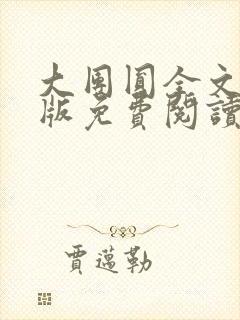 大團圓全文
版免費閱讀
賈邁勒